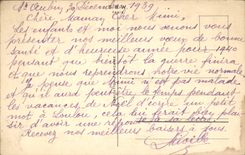 St Aubin, Décembre 1939
Chère Maman, Cher Mimi,
Les enfants et moi nous venons vous
présenter nos meilleurs vœux de bonne
santé et d'heureuse année pour 1940
pensant que bientôt la guerre finira
et que nous reprendrons notre vie normale.
Je pense que Mimi n'est pas malade
et qu'il aura peut être le temps pendant
les vacances de Noël d'écrire un petit
mot à Loulou, cela lui ferait plai
sir d'avoir une réponse à sa lettre
Recevez nos meilleurs baisers à tous